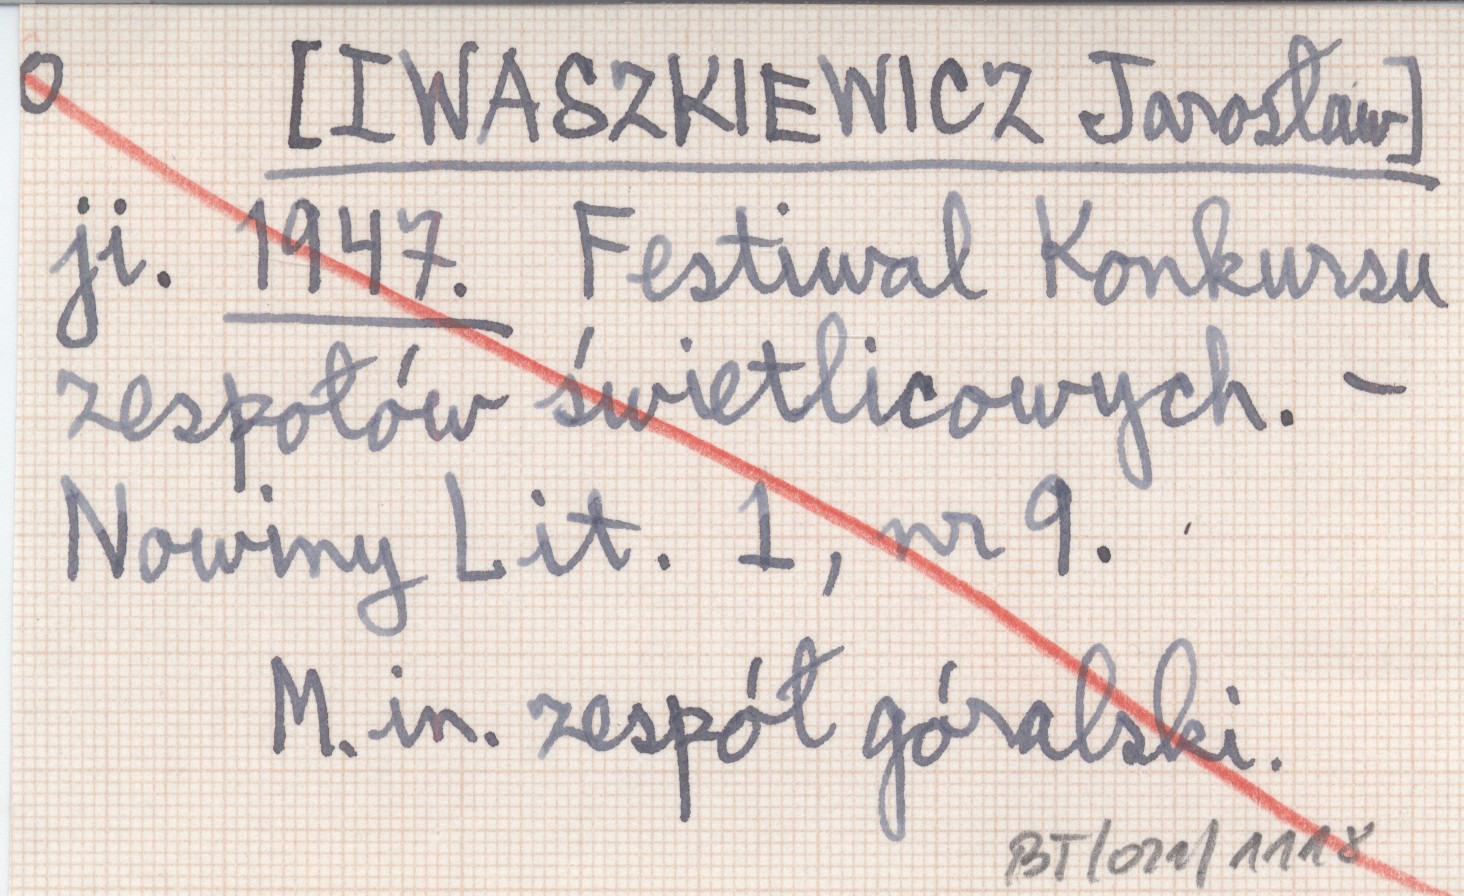 O
[IWASZKIEWICZ Jarosław]
ji. 1947. Festiwal Konkursu
zespołów świetlicowych. –
Nowiny Lit. 1, nr 9.
M. in. zespół góralski.
BT/021/1118